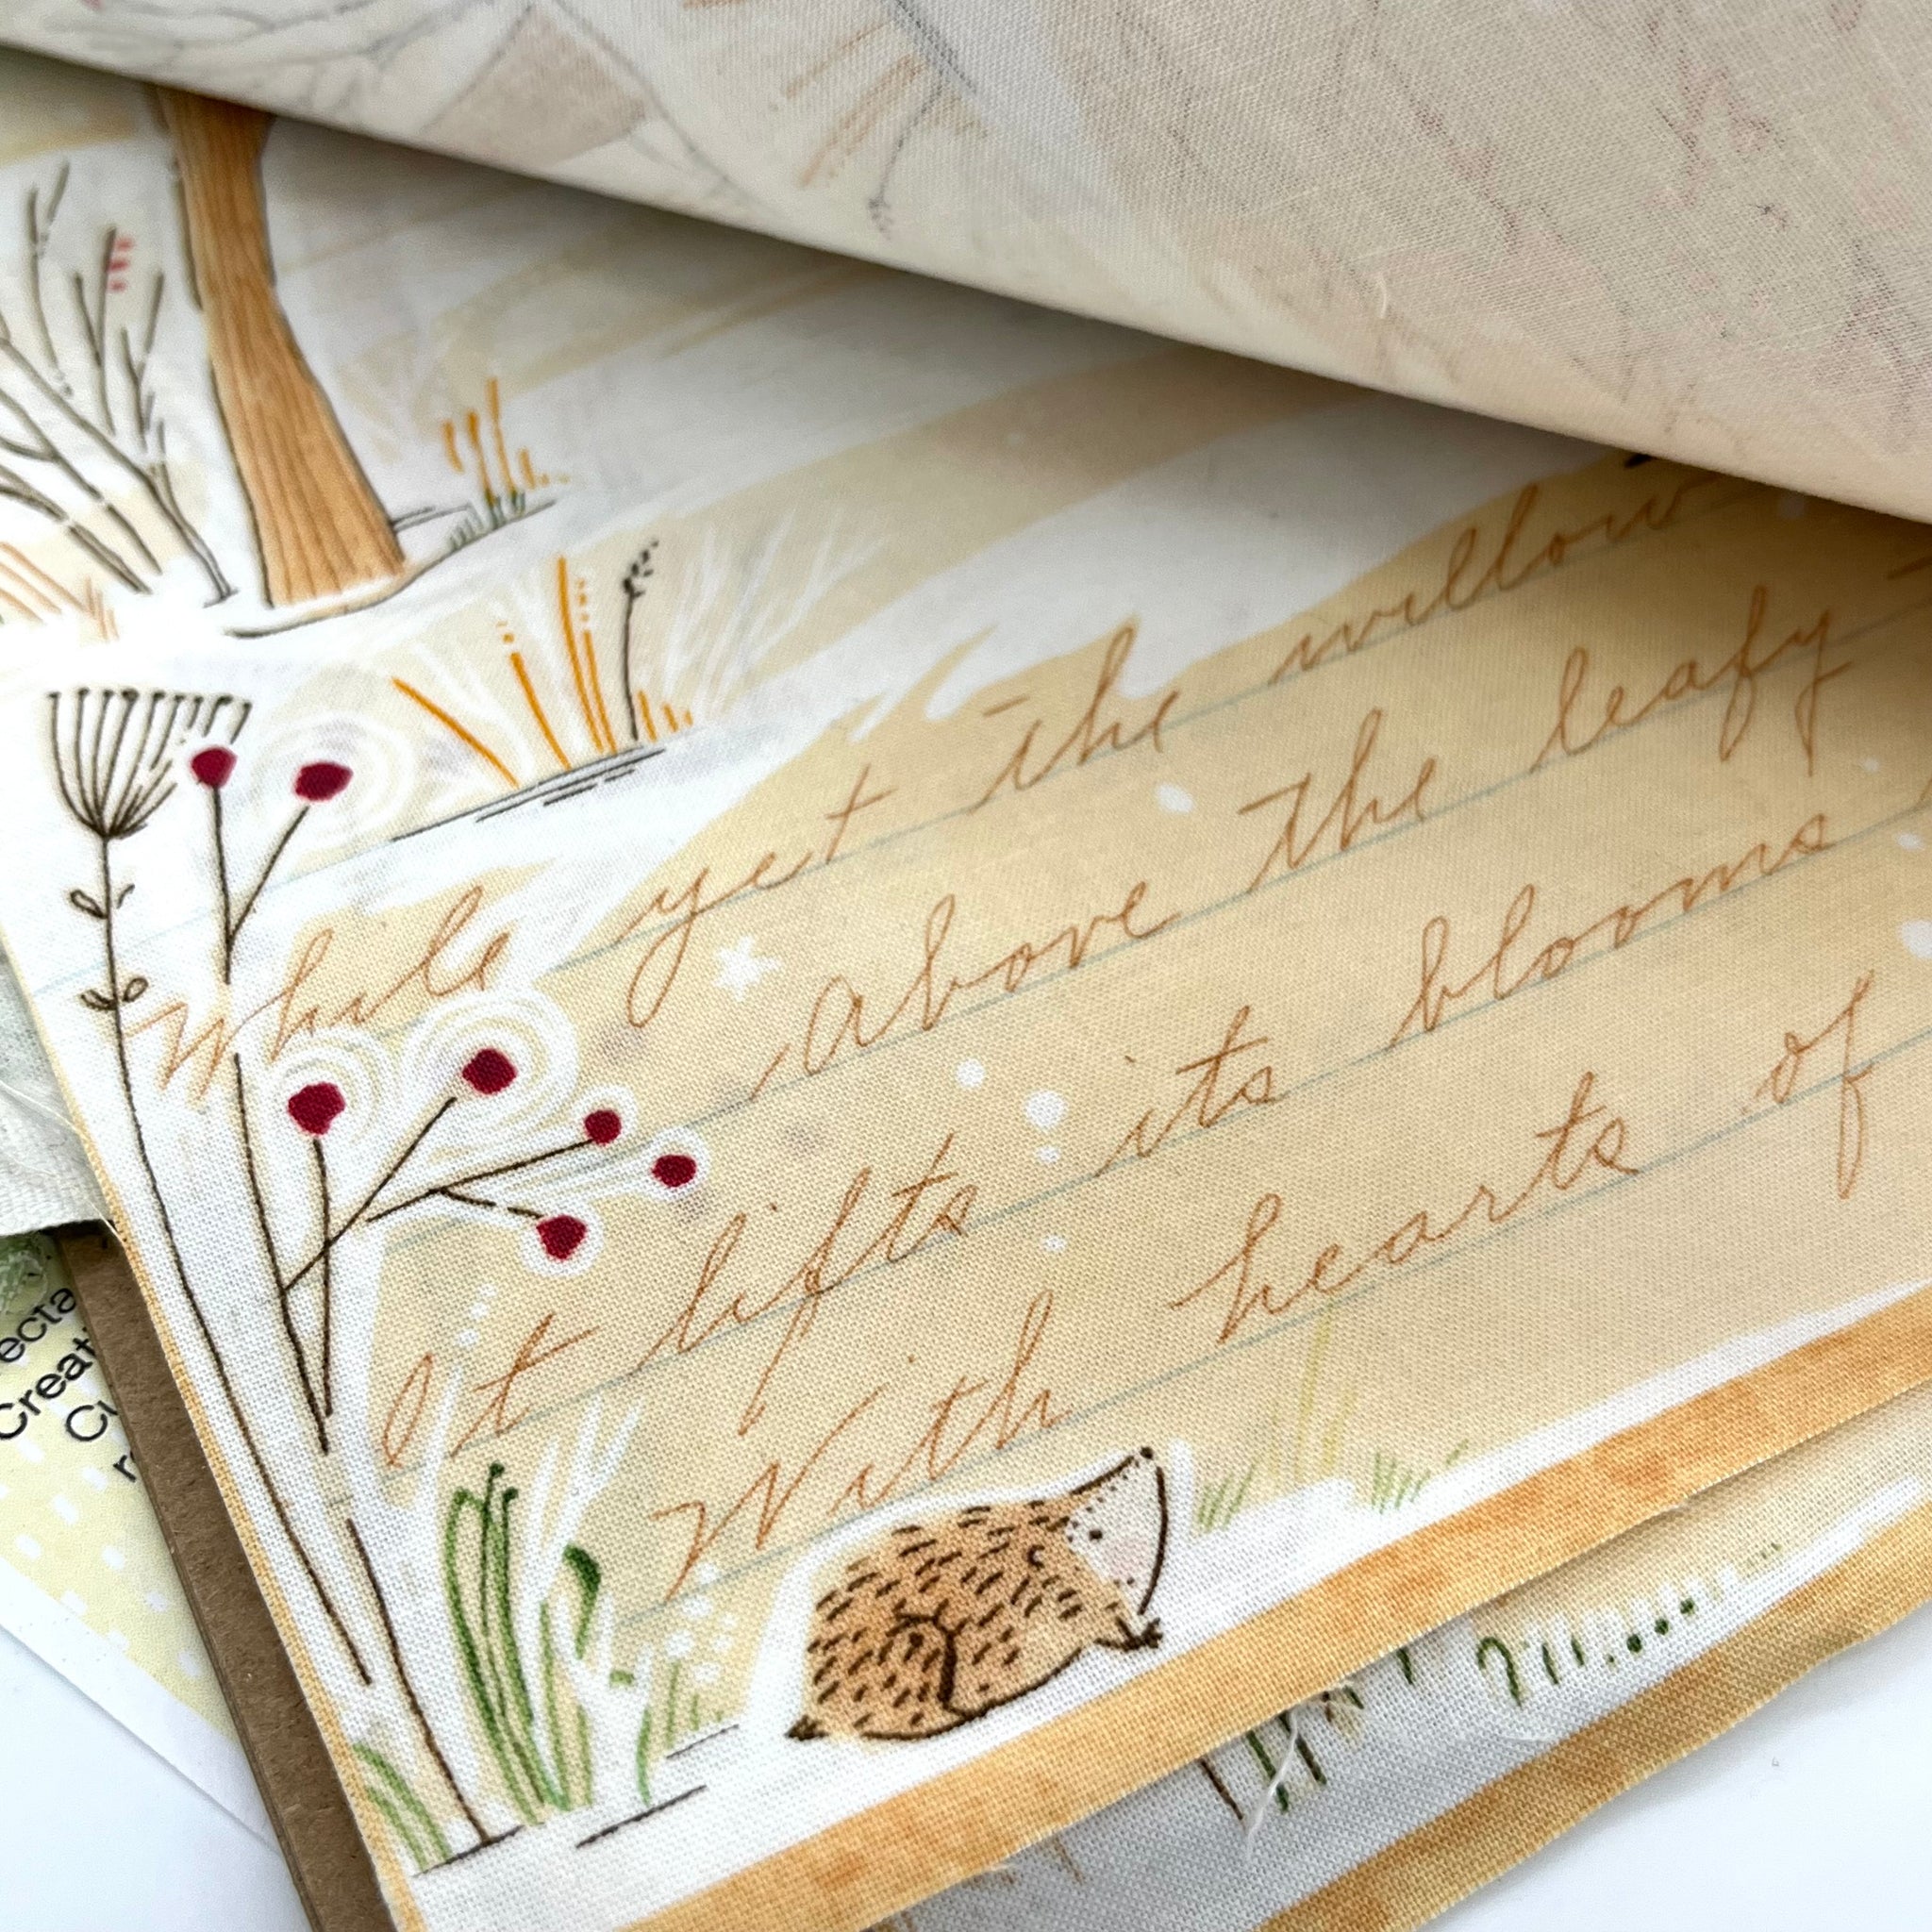 While yet the willow
Above the leafy
It lifts its blooms
With hearts of
ecta
Creati
Cu
r